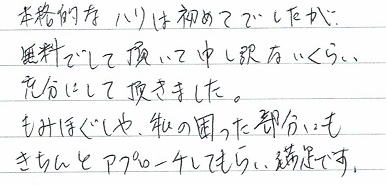 本格的なハリは初めてでしたが、
無料でして頂いて申し訳ないくらい
充分にして頂きました。
もみほぐしや、私の困った部分にも
きちんとアプローチしてもらい満足です。